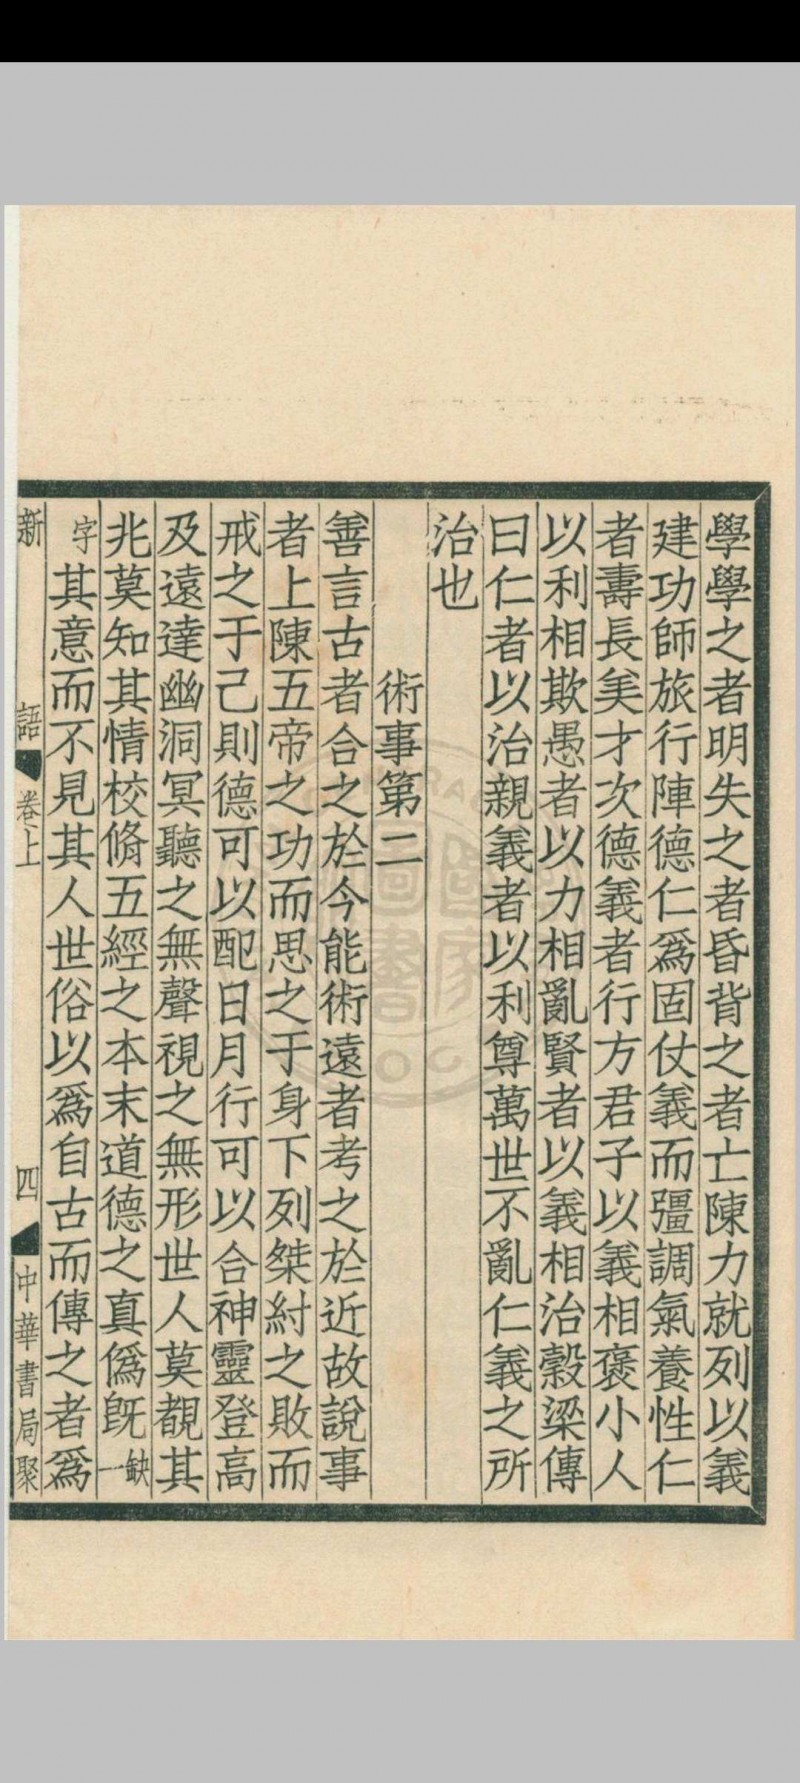 學學之者明失之者昏背之者亡陳力就列以義
建功師旅行陣德仁爲固仗義而彊調氣養性仁
者壽長美才次德義者行方君子以義相褒小人
以利相欺愚者以力相亂賢者以義相治穀梁傳
曰仁者以治親義者以利尊萬世不亂仁義之所
治也
術事第二
善言古者合之於今能術遠者考之於近故說事
者上陳五帝之功而思之于身下列桀紂之敗而
戒之于己則德可以配日月行可以合神靈登高
及遠達幽洞冥聽之無聲視之無形世人莫覩其
兆莫知其情校脩五經之本末道德之真僞旣缺一
字其意而不見其人世俗以爲自古而傳之者爲
新語 卷上 四 中華書局聚